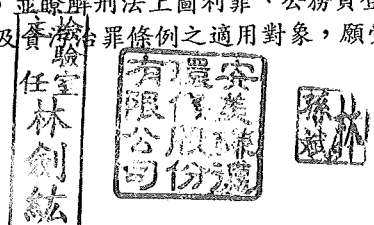 ，並瞭解刑法上圖利罪、公務員登
及貪污治罪條例之適用對象，願受
檢驗室
主任
林劍紘
安美
環保股份
有限公司
林